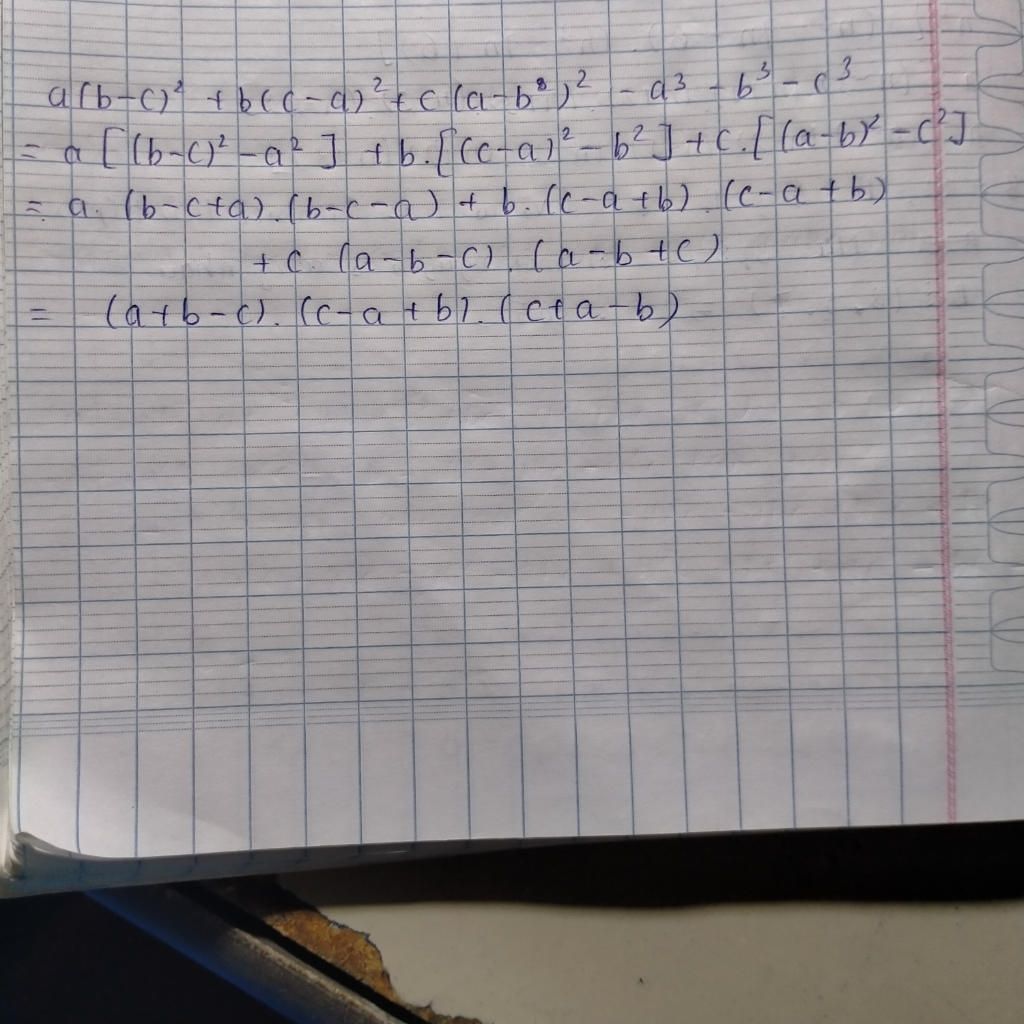 a(b-c)² + b(c-a)² + c(a-b⁸)² - a³ - b³ - c³
= a[(b-c)² - a²] + b.[(c-a)² - b²] + c.[(a-b)² - c²]
= a.(b-c+a).(b-c-a) + b.(c-a+b).(c-a+b)
+ c.(a-b-c).(a-b+c)
= (a+b-c).(c-a+b).(c+a-b)